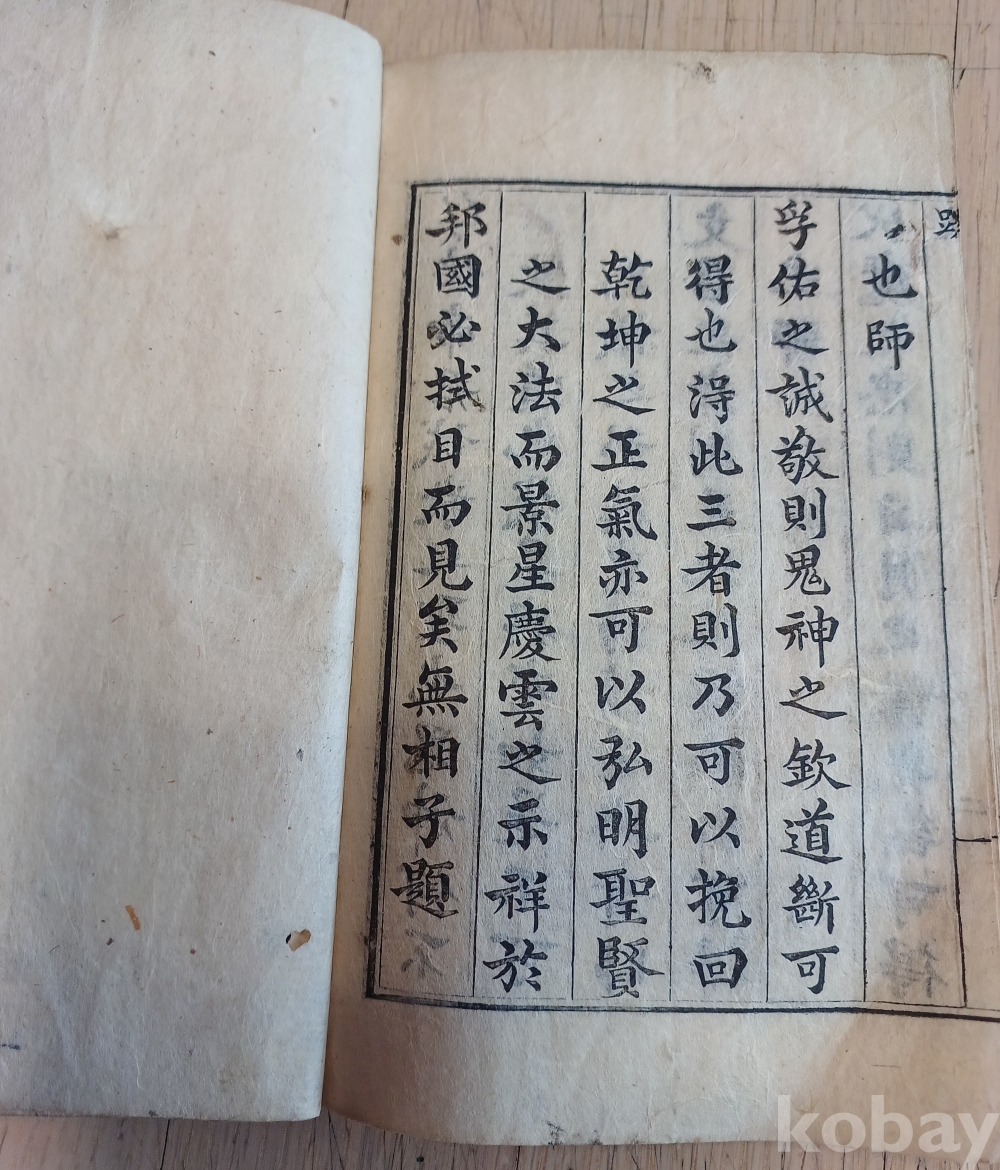 也師
孚佑之誠敬則鬼神之欽道斷可
得也淂此三者則乃可以挽回
乾坤之正氣亦可以弘明聖賢
之大法而景星慶雲之示祥於
邦國必拭目而見矣無相子題
kobay